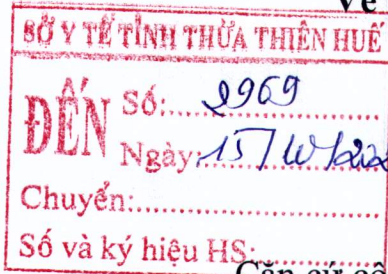 Về
SỞ Y TẾ TỈNH THỪA THIÊN HUẾ
ĐẾN
Số:
Ngày: 15/
Chuyển:
Số và ký hiệu HS:
Căn cứ